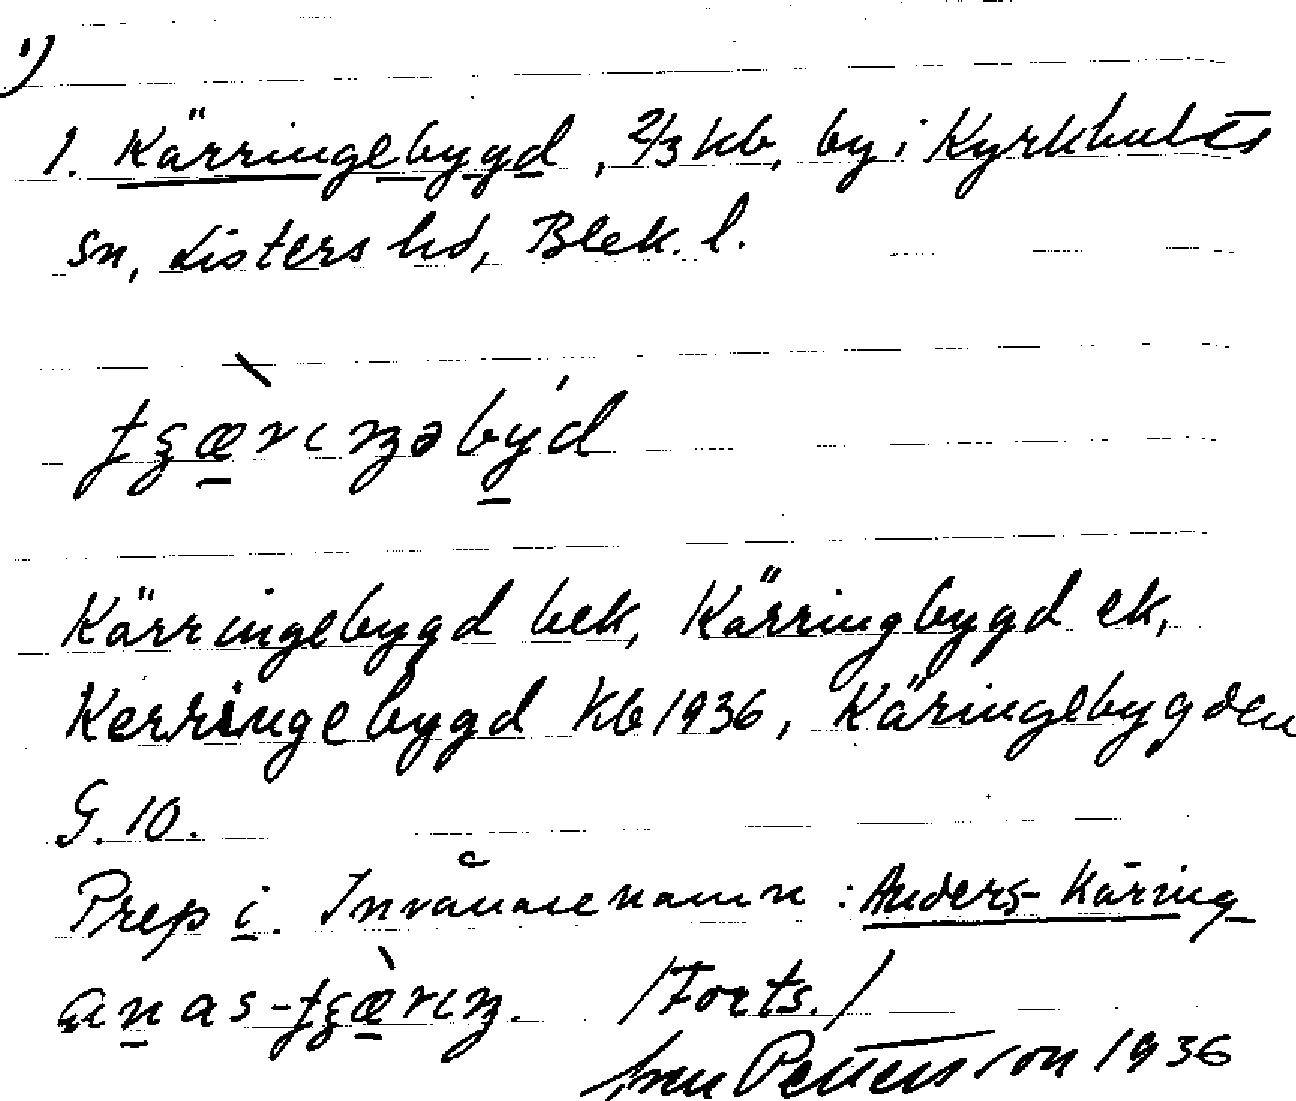 1)
1. Kärringebygd, 2/3 kb, by i Kyrkhults
sn, Listers hd, Blek. l.
Kärringebygd bek, Kärringbygd ek,
Kerringebygd Kb 1936, Käringebygden
G. 10.
Prep i. Invånarenamn: Anders-Käring
/Forts./
Pettersson 1936